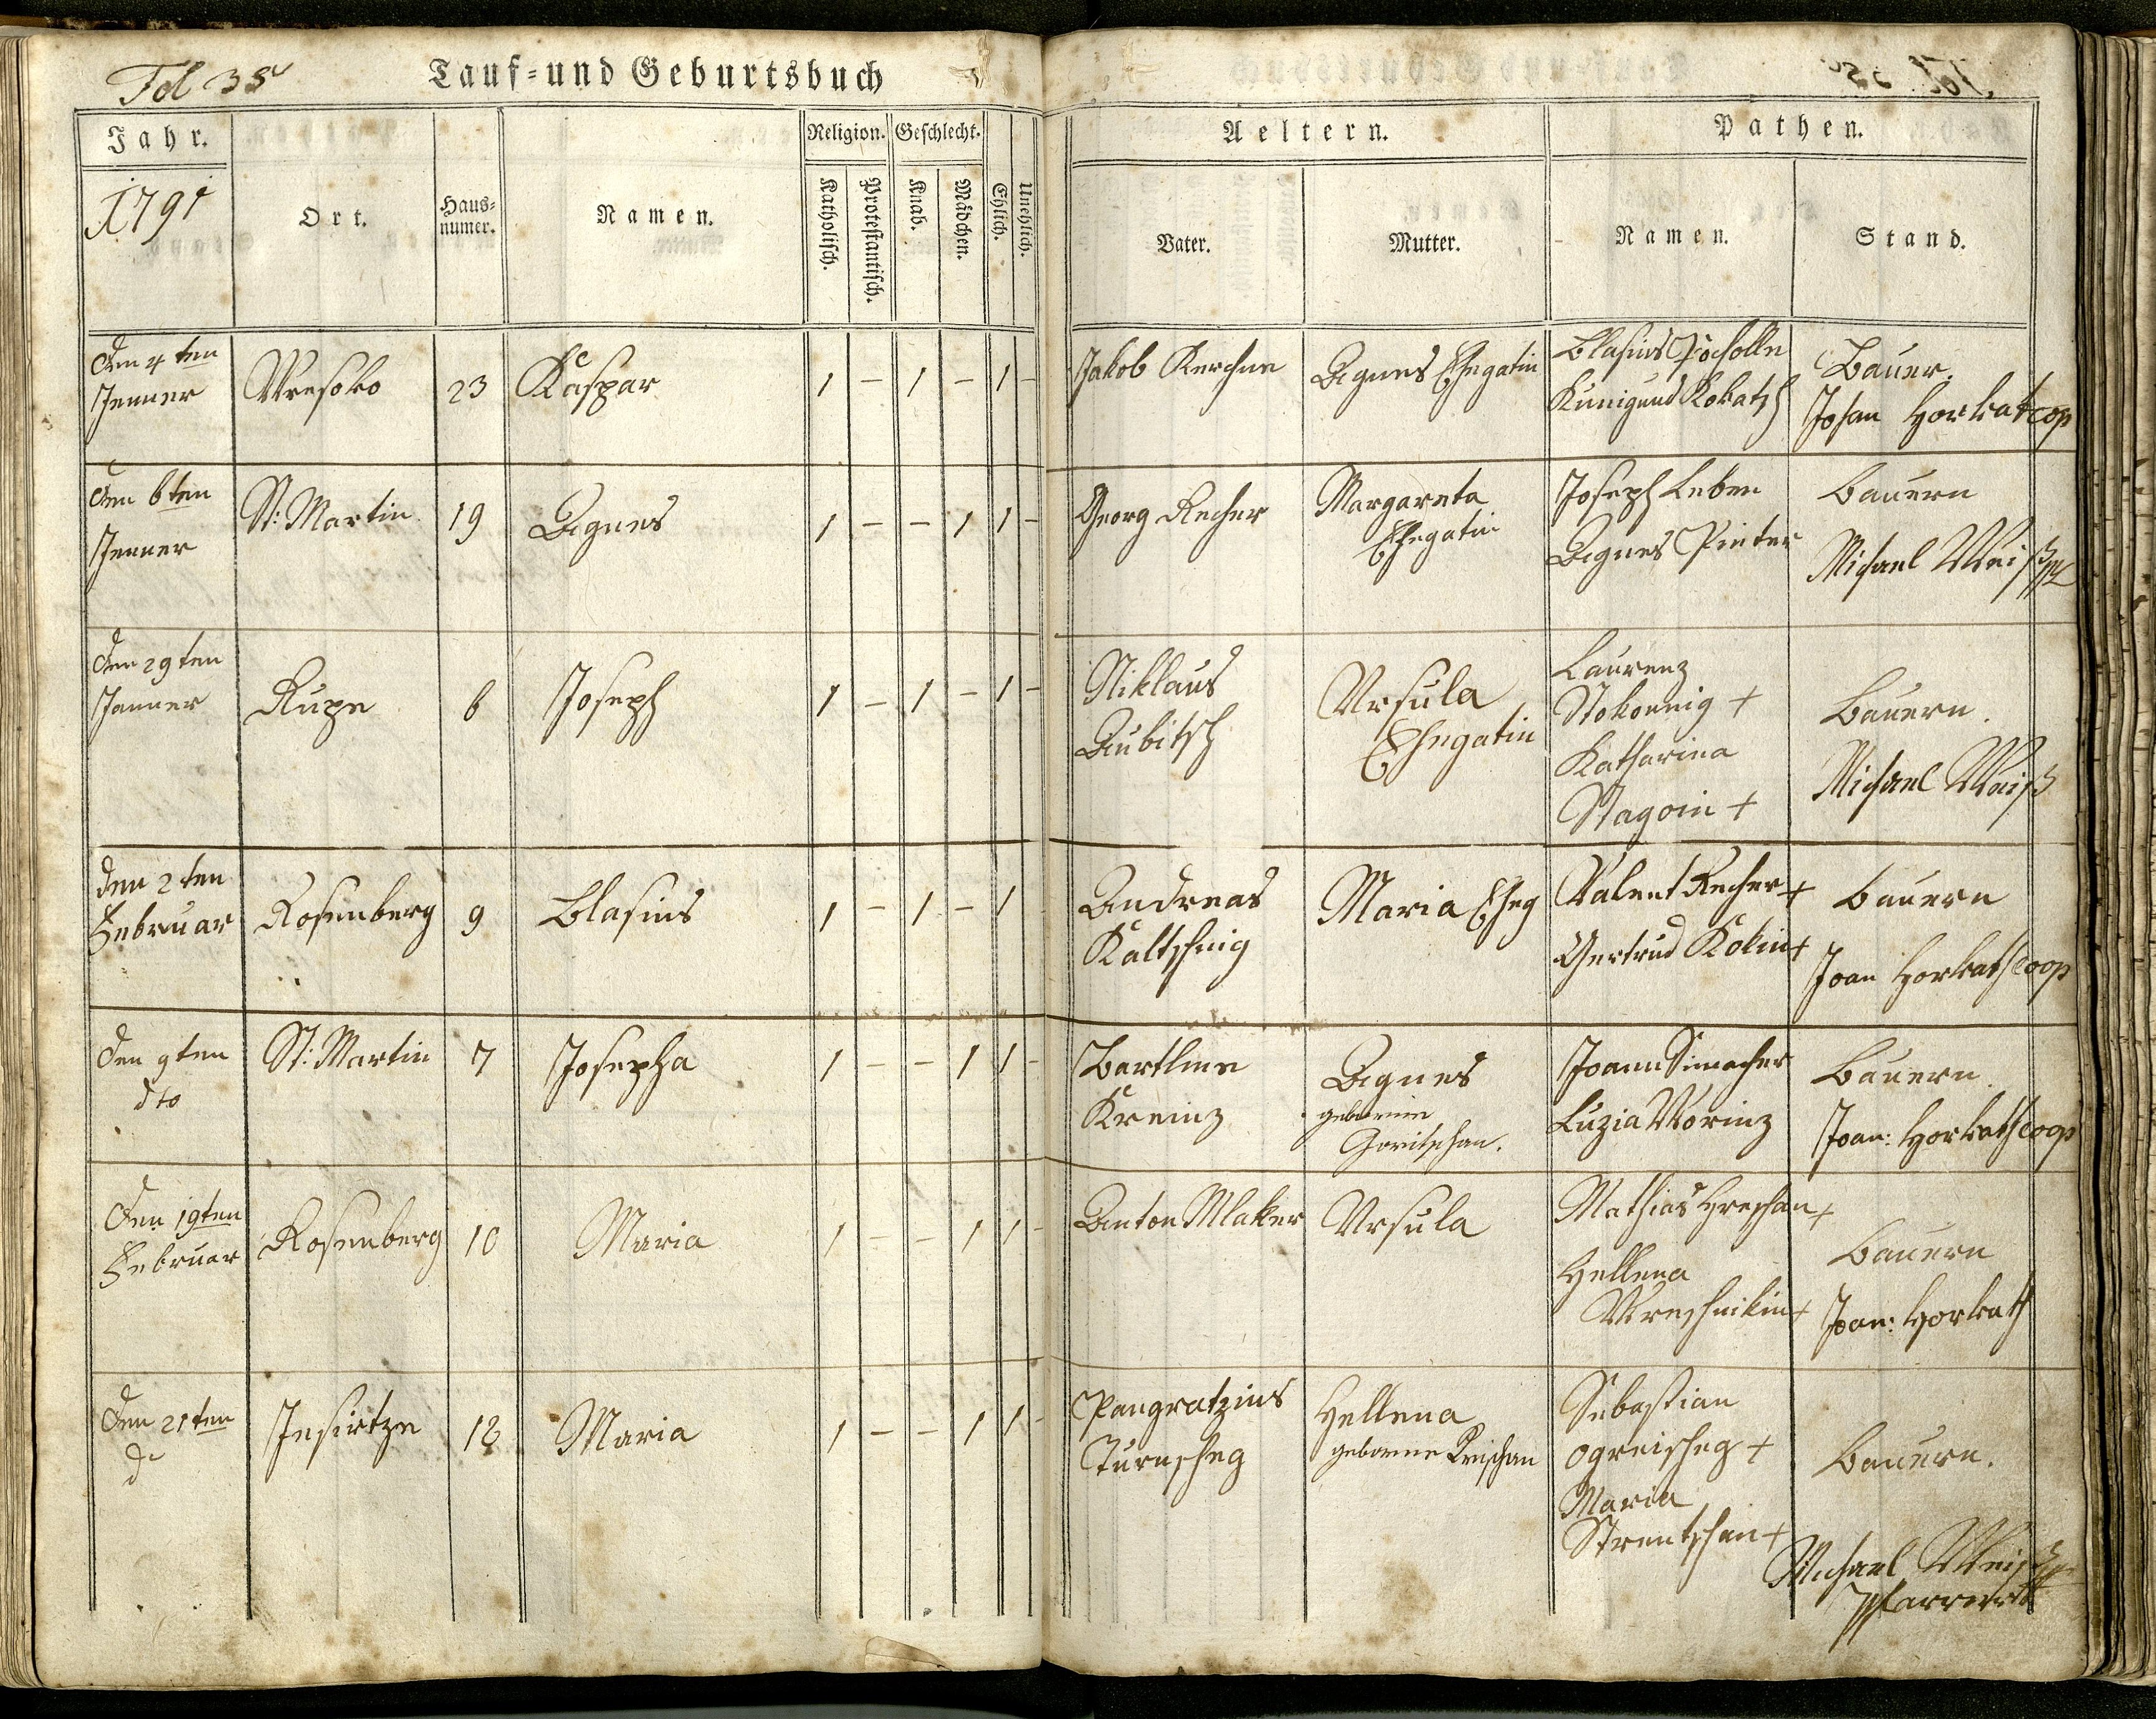 Fol 35
Tauf- und Geburtsbuch
Jahr.
1791
Ort.
Haus-
numer.
Namen.
Religion.
Katholisch.
Protestantisch.
Geschlecht.
Knab.
Mädchen.
Ehlich.
Unehlich.
Aeltern.
Vater.
Mutter.
Pathen.
Namen.
Stand.
den 4ten
Jenner
Wresoko
23
Kaspar
1 – 1 – 1 –
Jakob Kerchne
Agnes Ehegatin
Blasius Pocholle
Kunigund Kokatsch
Bauer.
Johan Horkat cop
den 6ten
Jenner
St: Martin
19
Agnes
1 – – 1 1 –
Georg Recher
Margareta
Ehegatin
Joseph Leben
Agnes Pinter
Bauern
Michael Weiß
den 29ten
Janner
Rupe
6
Joseph
1 – 1 – 1 –
Niklaus
Aubitsch
Ursula
Ehegatin
Laurenz
Stokonnig +
Katharina
Stagoin +
Bauern.
Michael Weiß
den 2ten
Februar
Rosenberg
9
Blasius
1 – 1 – 1
Andreas
Kaltschnig
Maria Eheg
Valent Recher +
Gertrud Kokin +
Bauern
Joan Horkath coop
den 9ten
dto
St: Martin
7
Josepha
1 – – 1 1 –
Bartlme
Kreinz
Agnes
geborne
Goritschan.
Joann Simacher
Luzia Worinz
Bauern.
Joan: Horkath coop
Den 19ten
Februar
Rosenberg
10
Maria
1 – – 1 1 –
Anton Mlaker
Ursula
Mathias Hreschan +
Hellena
Wreschnikin +
Bauern
Joan: Horkath
den 21ten
d
Jesirtze
12
Maria
1 – – 1 1 –
Pangratzius
Turnscheg
Hellena
geborne Krischan
Sebastian
Ogreischeg +
Maria
Strentschan +
Bauern.
Michael Weiß
Pfarrer